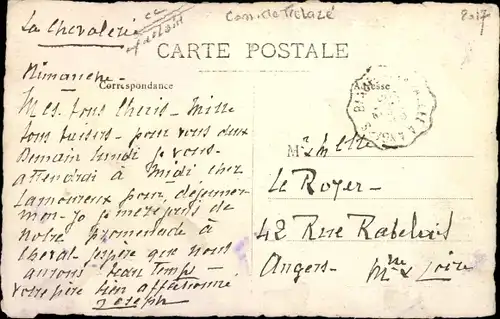 La Chevalerie
Can. de Trélazé
2017
CARTE POSTALE
Correspondance
Adresse
Dimanche -
Mes tous cheris - Mille
bons baisers - pour vous deux
Demain lundi je vous
attendrai à Midi chez
Lamoureux pour déjeuner
mon - je me réjouis de
notre promenade à
cheval - j'espère que nous
aurons beau temps -
votre père bien affectionné
Joseph
Melle
Le Royer -
42 Rue Rabelais
Angers - Mne & Loire